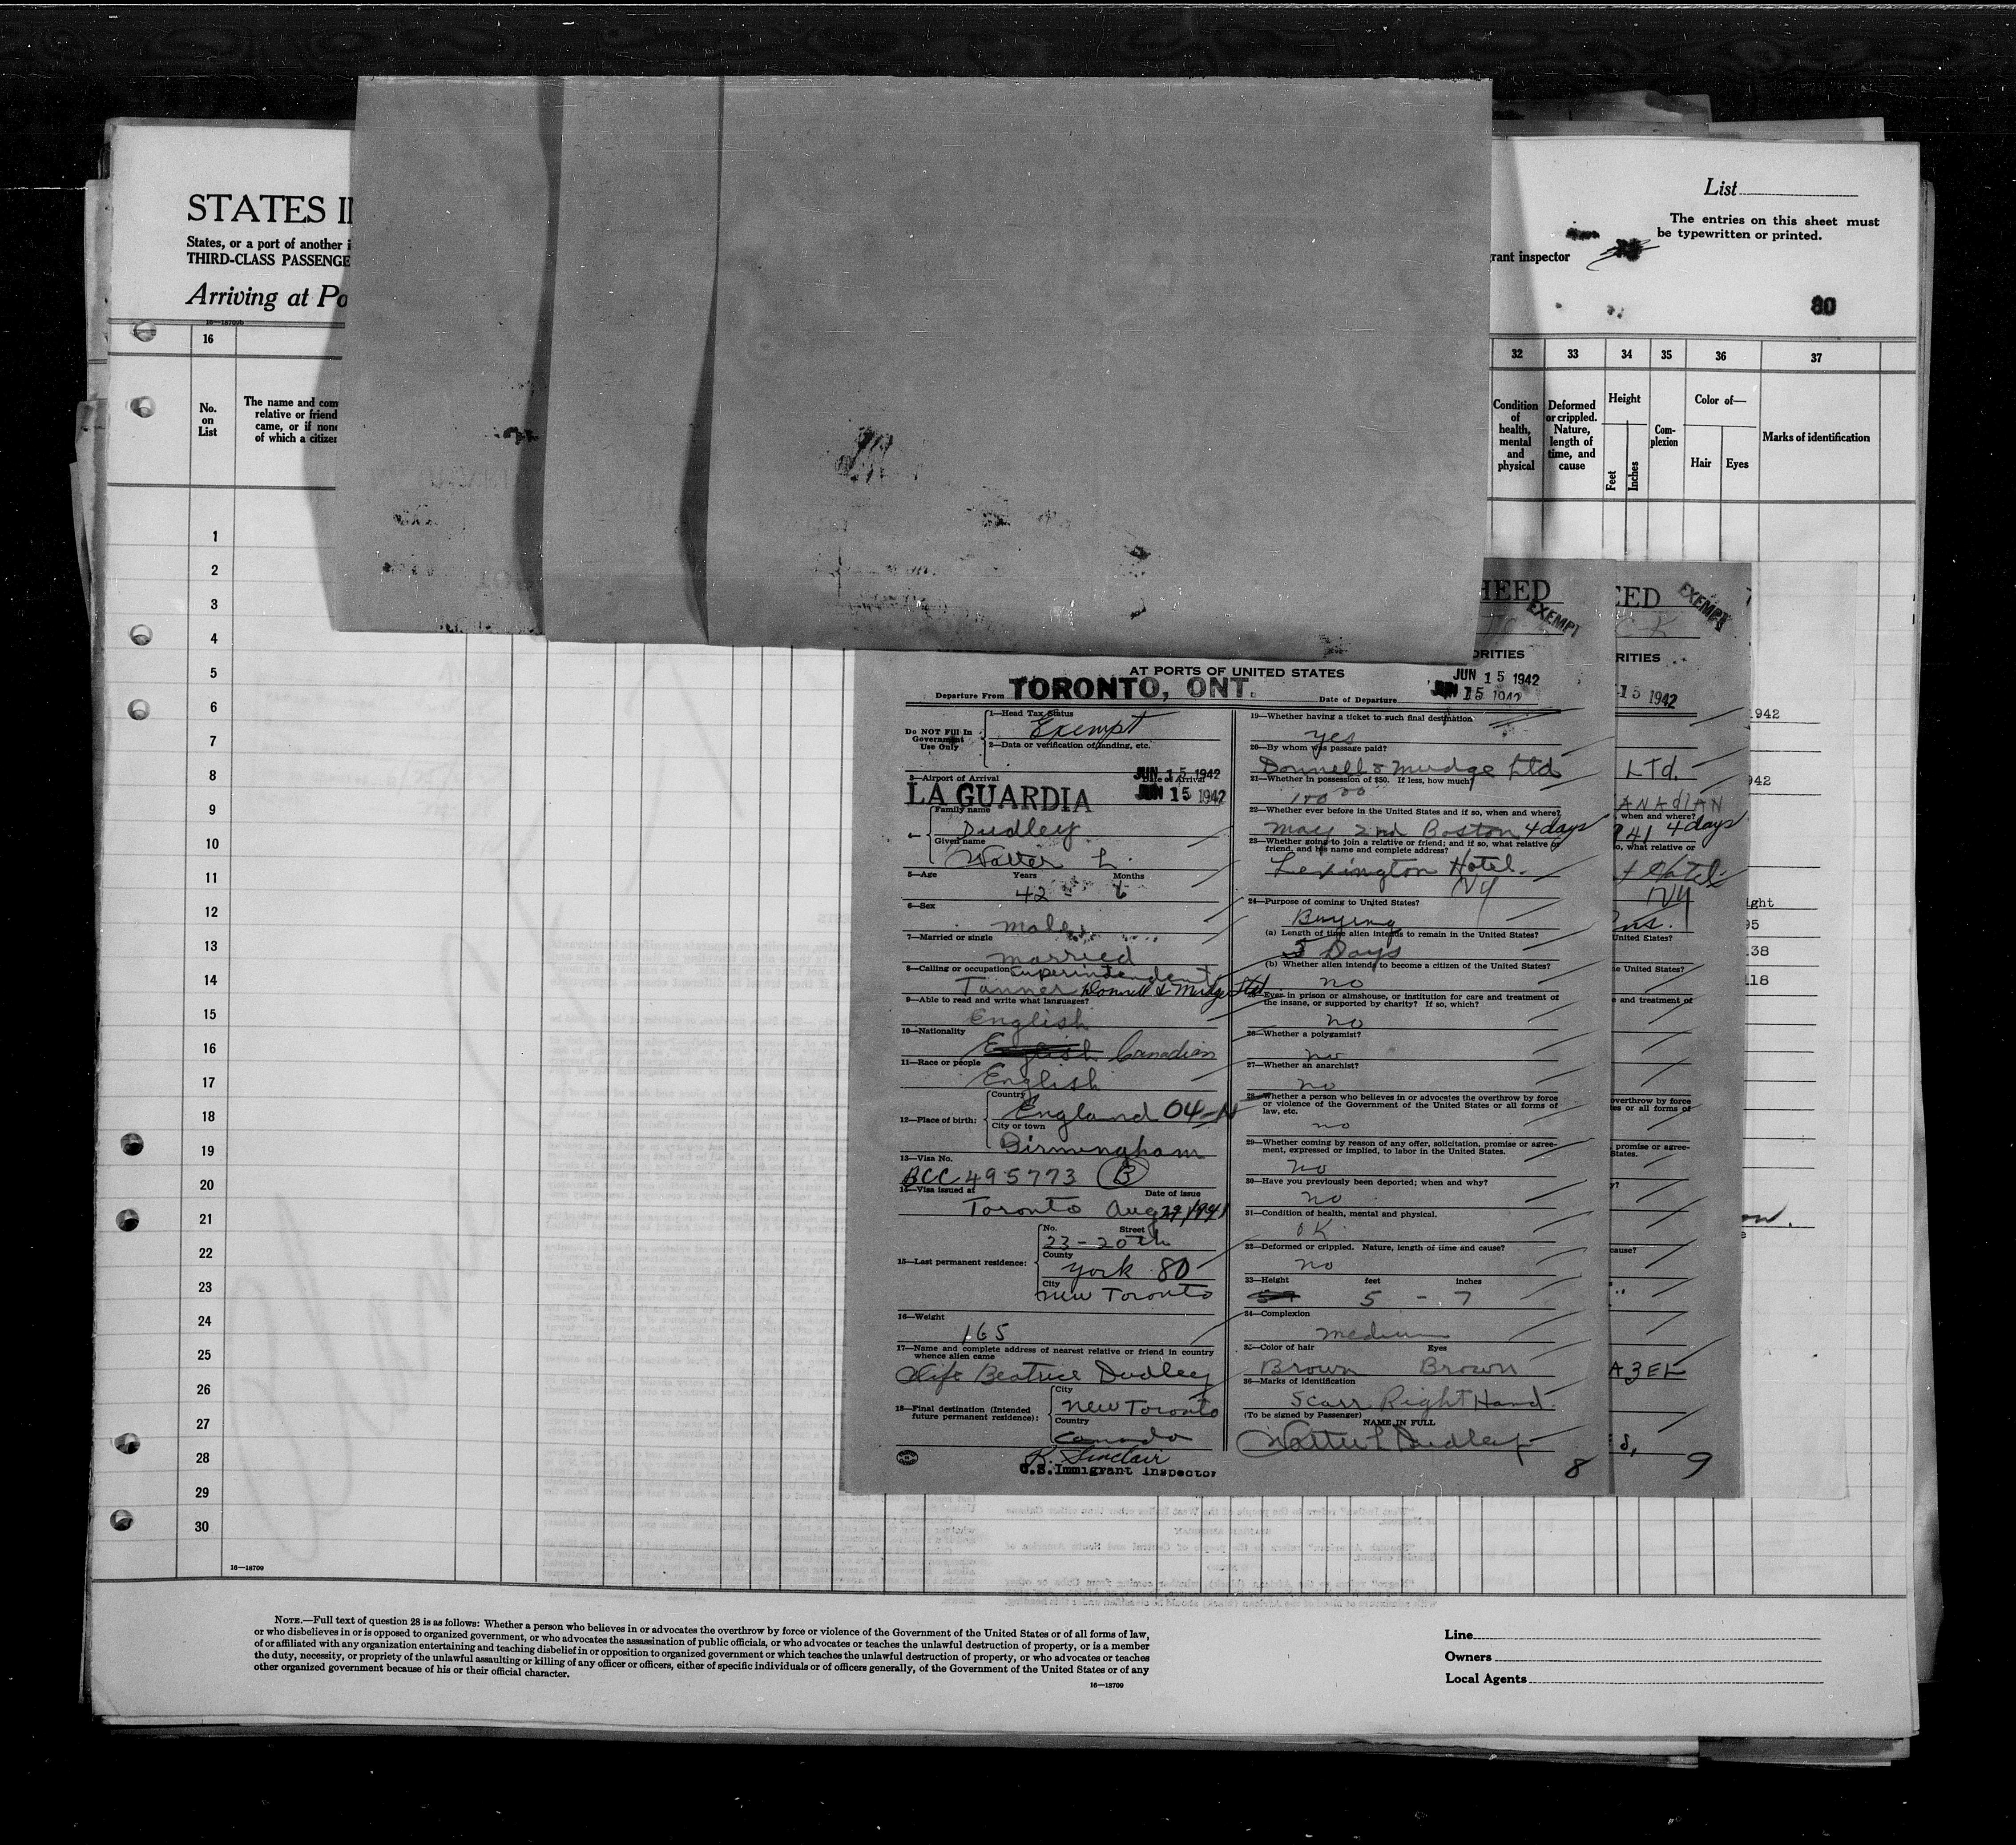 STATES I
States, or a port of another i
THIRD-CLASS PASSENGE
Arriving at Po
List
The entries on this sheet must
be typewritten or printed.
grant inspector
80
16—18709b
16
No.
on
List
The name and com
relative or friend
came, or if none
of which a citizen
32
33
34
35
36
37
Condition
of
health,
mental
and
physical
Deformed
or crippled.
Nature,
length of
time, and
cause
Height
Feet
Inches
Com-
plexion
Color of—
Hair
Eyes
Marks of identification
1
2
3
4
5
6
7
8
9
10
11
12
13
14
15
16
17
18
19
20
21
22
23
24
25
26
27
28
29
30
16—18709
HEED
EXEMPT
ORITIES
AT PORTS OF UNITED STATES
Departure From TORONTO, ONT.
Date of Departure
JUN 15 1942
JUN 15 1942
1—Head Tax Status
Exempt
Do NOT Fill In
Government
Use Only
2—Data or verification of landing, etc.
3—Airport of Arrival
LA GUARDIA
Date of Arrival
JUN 15 1942
JUN 15 1942
4—
Family name
Dudley
Given name
Walter L.
5—Age
Years
Months
42 - 6
6—Sex
male
7—Married or single
married
8—Calling or occupation
Superintendent
Tanner Donnell & Mudge Ltd
9—Able to read and write what languages?
English
10—Nationality
English Canadian
11—Race or people
English
12—Place of birth:
Country
England 04-N
City or town
Birmingham
13—Visa No.
BCC 495773 B
14—Visa issued at
Date of issue
Toronto Aug 29/1941
15—Last permanent residence:
No.
Street
23 - 20th
County
York 80
City
New Toronto
16—Weight
165
17—Name and complete address of nearest relative or friend in country
whence alien came
Wife Beatrice Dudley
18—Final destination (Intended
future permanent residence):
City
New Toronto
Country
Canada
K. Sinclair
U.S. Immigrant Inspector
19—Whether having a ticket to such final destination
yes
20—By whom was passage paid?
Donnell & Mudge Ltd
21—Whether in possession of $50. If less, how much?
100 00
22—Whether ever before in the United States and if so, when and where?
May 2nd Boston 4 days
23—Whether going to join a relative or friend; and if so, what relative or
friend, and his name and complete address?
Lexington Hotel.
NY
24—Purpose of coming to United States?
Buying
(a) Length of time alien intends to remain in the United States?
5 Days
(b) Whether alien intends to become a citizen of the United States?
no
25—Ever in prison or almshouse, or institution for care and treatment of
the insane, or supported by charity? If so, which?
no
26—Whether a polygamist?
no
27—Whether an anarchist?
no
28—Whether a person who believes in or advocates the overthrow by force
or violence of the Government of the United States or all forms of
law, etc.
no
29—Whether coming by reason of any offer, solicitation, promise or agree-
ment, expressed or implied, to labor in the United States.
no
30—Have you previously been deported; when and why?
no
31—Condition of health, mental and physical.
OK
32—Deformed or crippled. Nature, length of time and cause?
no
33—Height
feet
inches
5 - 7
34—Complexion
medium
35—Color of hair
Eyes
Brown Brown
36—Marks of identification
Scarr Right Hand.
(To be signed by Passenger)
NAME IN FULL
Walter L Dudley
8
EED
EXEMPT
RITIES
15 1942
LTd.
ANAdIAN
when and where?
941 4 days
o, what relative or
NY
United States?
he United States?
e and treatment of
overthrow by force
es or all forms of
promise or agree-
States.
cause?
AZEL
9
1942
942
ight
95
38
118
NOTE.—Full text of question 28 is as follows: Whether a person who believes in or advocates the overthrow by force or violence of the Government of the United States or of all forms of law,
or who disbelieves in or is opposed to organized government, or who advocates the assassination of public officials, or who advocates or teaches the unlawful destruction of property, or is a member
of or affiliated with any organization entertaining and teaching disbelief in or opposition to organized government or which teaches the unlawful destruction of property, or who advocates or teaches
the duty, necessity, or propriety of the unlawful assaulting or killing of any officer or officers, either of specific individuals or of officers generally, of the Government of the United States or of any
other organized government because of his or their official character.
16—18709
Line
Owners
Local Agents